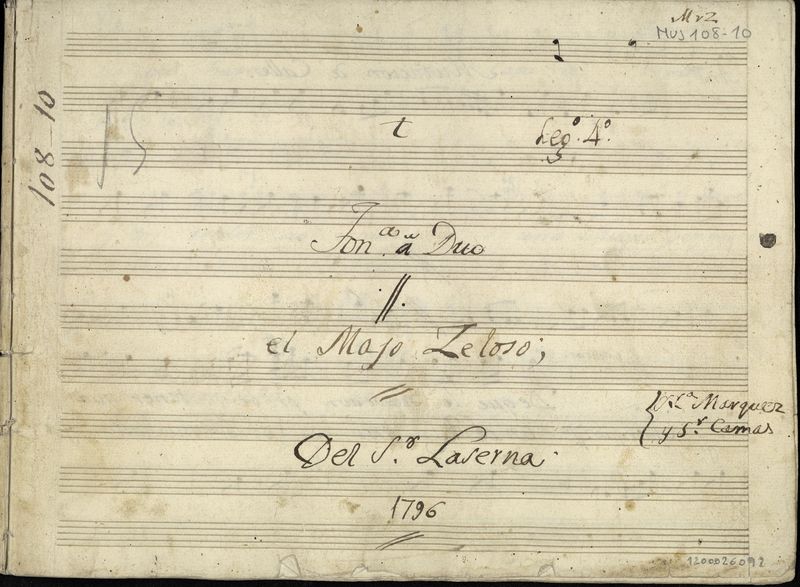 MrZ
Mus 108-10
108-10
t
Leg.º 4.º
Ton.da a Duo
el Majo Zeloso;
S.ra Marquez
y S.r Camas
Del S.r Laserna.
1796
1200026092